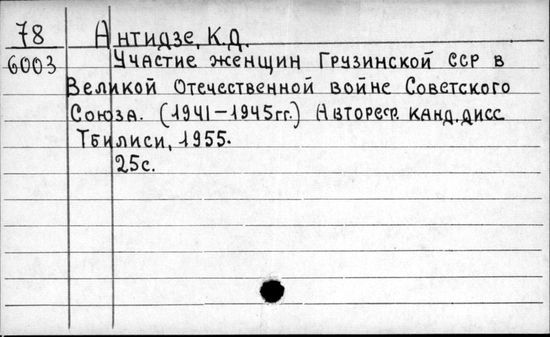 78 Антидзе, К.Д.
6003 Участие женщин Грузинской ССР в
Великой Отечественной войне Советского
Союза. (1941-1945гг.) Автореф. канд. дисс.
Тбилиси, 1955.
25с.